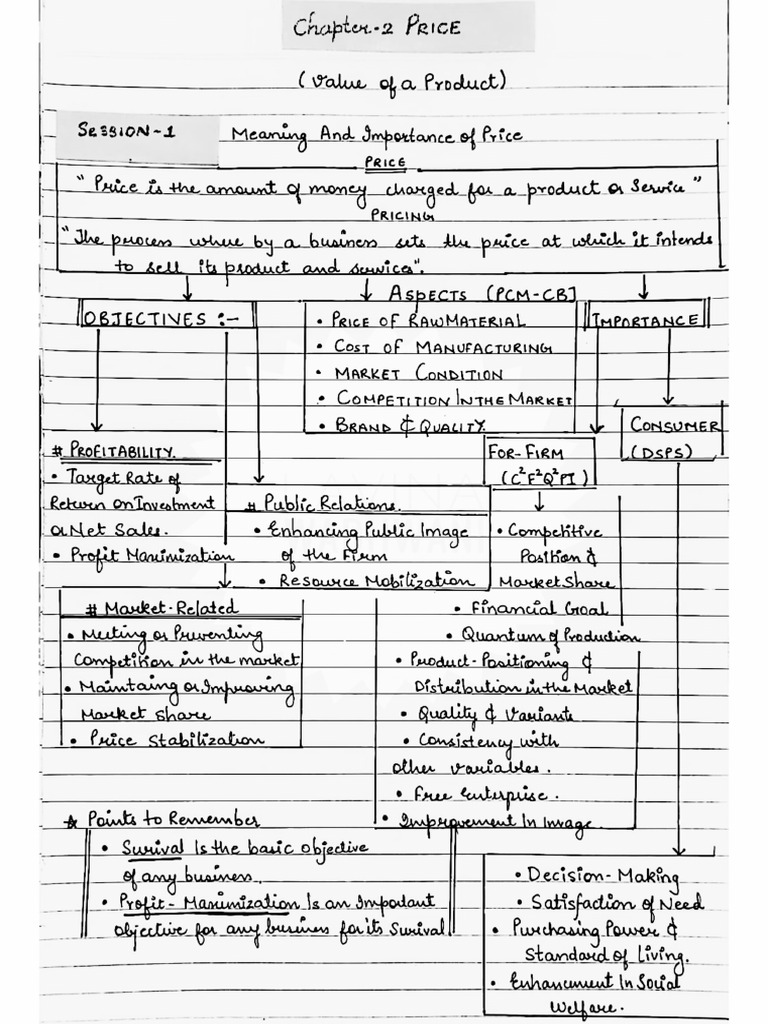 Chapter-2 PRICE
(Value of a Product)
SESSION-1 Meaning And Importance of Price
PRICE
"Price is the amount of money charged for a product or Service"
PRICING
"The process where by a business sets the price at which it intends
to sell its product and services".
ASPECTS (PCM-CB]
OBJECTIVES :-
• PRICE OF RAW MATERIAL
• COST OF MANUFACTURING
• MARKET CONDITION
• COMPETITION IN THE MARKET
• BRAND & QUALITY
IMPORTANCE
CONSUMER
(DSPS)
FOR-FIRM
(C²F²Q²PI)
# PROFITABILITY.
• Target Rate of
Return on Investment
or Net Sales.
• Profit Maximization
# Public Relations.
• Enhancing Public Image
of the Firm
• Resource Mobilization
• Competitive
Position &
Market Share
• Financial Goal
• Quantum of Production
• Product-Positioning &
Distribution in the Market
• Quality & Variants
• Consistency with
other variables.
• Free Enterprise.
• Improvement In Image.
# Market-Related
• Meeting or Preventing
Competition in the market
• Maintaing or Improving
Market Share
• Price Stabilization
☆ Points to Remember
• Surival Is the basic objective
of any business.
• Profit-Maximization Is an Important
objective for any business for its Surival
• Decision-Making
• Satisfaction of Need
• Purchasing Power &
Standard of Living.
• Enhancement In Social
Welfare.